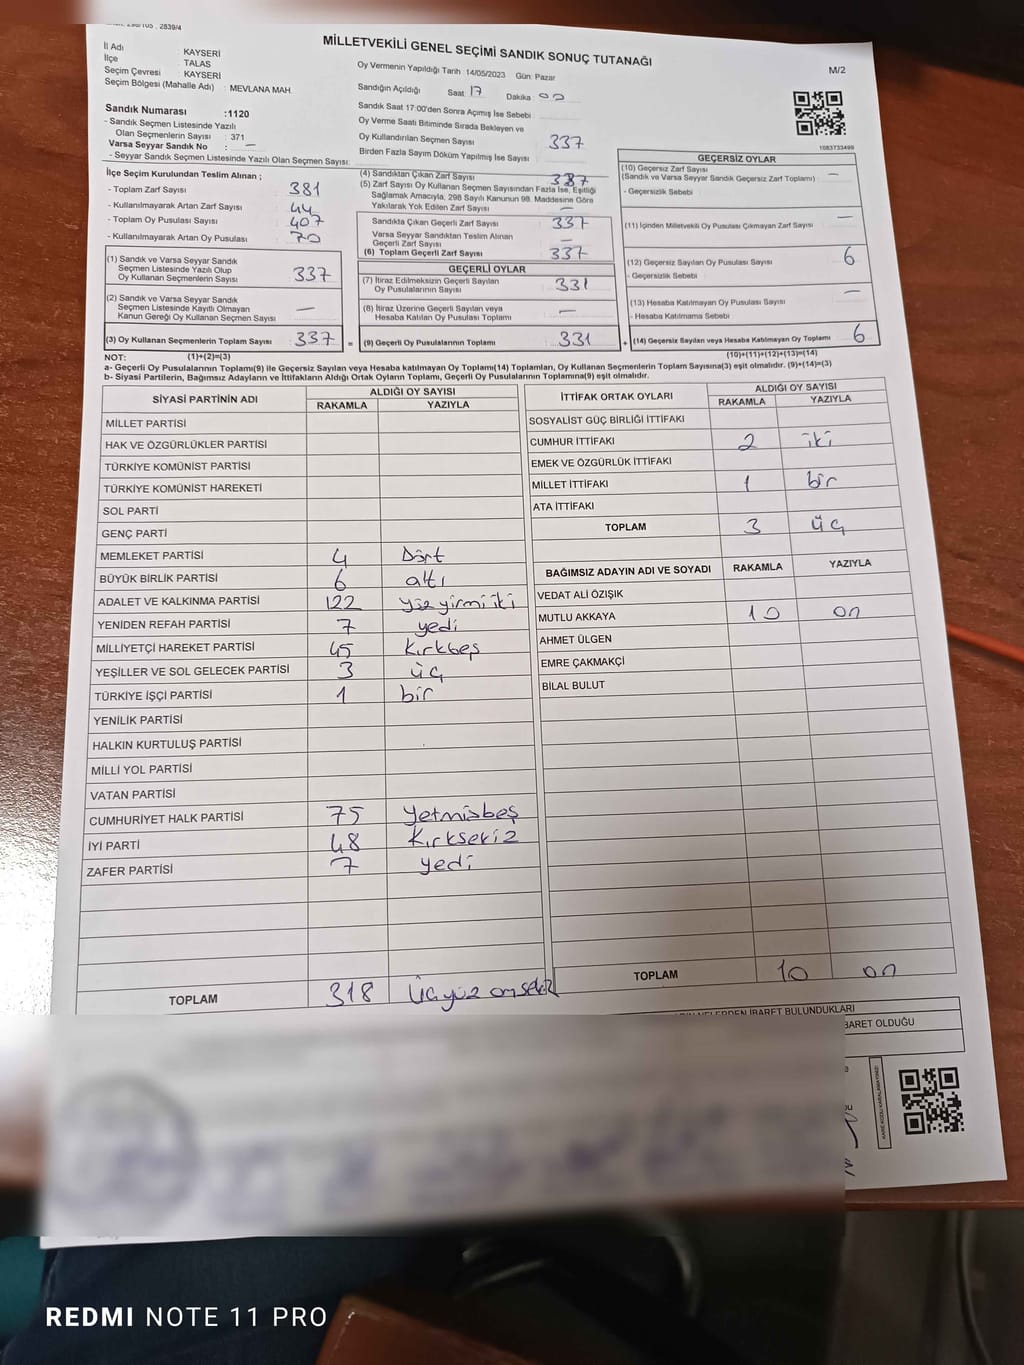 298/105 , 2839/4
MİLLETVEKİLİ GENEL SEÇİMİ SANDIK SONUÇ TUTANAĞI
M/2
İl Adı : KAYSERİ
İlçe : TALAS
Seçim Çevresi : KAYSERİ
Seçim Bölgesi (Mahalle Adı) : MEVLANA MAH.
Sandık Numarası :1120
- Sandık Seçmen Listesinde Yazılı
Olan Seçmenlerin Sayısı : 371
Varsa Seyyar Sandık No : —
- Seyyar Sandık Seçmen Listesinde Yazılı Olan Seçmen Sayısı:
Oy Vermenin Yapıldığı Tarih 14/05/2023 Gün: Pazar
Sandığın Açıldığı Saat 17 Dakika 00
Sandık Saat 17:00'den Sonra Açımış İse Sebebi
Oy Verme Saati Bitiminde Sırada Bekleyen ve
Oy Kullandırılan Seçmen Sayısı 337
Birden Fazla Sayım Döküm Yapılmış İse Sayısı
1083733499
İlçe Seçim Kurulundan Teslim Alınan ;
- Toplam Zarf Sayısı 381
- Kullanılmayarak Artan Zarf Sayısı 44
- Toplam Oy Pusulası Sayısı 407
- Kullanılmayarak Artan Oy Pusulası 70
(1) Sandık ve Varsa Seyyar Sandık
Seçmen Listesinde Yazılı Olup
Oy Kullanan Seçmenlerin Sayısı 337
(2) Sandık ve Varsa Seyyar Sandık
Seçmen Listesinde Kayıtlı Olmayan
Kanun Gereği Oy Kullanan Seçmen Sayısı —
(3) Oy Kullanan Seçmenlerin Toplam Sayısı 337 =
(4) Sandıktan Çıkan Zarf Sayısı 337
(5) Zarf Sayısı Oy Kullanan Seçmen Sayısından Fazla İse, Eşitliği
Sağlamak Amacıyla, 298 Sayılı Kanunun 98. Maddesine Göre
Yakılarak Yok Edilen Zarf Sayısı —
Sandıkta Çıkan Geçerli Zarf Sayısı 337
Varsa Seyyar Sandıktan Teslim Alınan
Geçerli Zarf Sayısı —
(6) Toplam Geçerli Zarf Sayısı 337
GEÇERLİ OYLAR
(7) İtiraz Edilmeksizin Geçerli Sayılan
Oy Pusulalarının Sayısı 331
(8) İtiraz Üzerine Geçerli Sayılan veya
Hesaba Katılan Oy Pusulası Toplamı —
(9) Geçerli Oy Pusulalarının Toplamı 331 +
GEÇERSİZ OYLAR
(10) Geçersiz Zarf Sayısı
(Sandık ve Varsa Seyyar Sandık Geçersiz Zarf Toplamı) —
- Geçersizlik Sebebi
(11) İçinden Milletvekili Oy Pusulası Çıkmayan Zarf Sayısı —
(12) Geçersiz Sayılan Oy Pusulası Sayısı 6
- Geçersizlik Sebebi
(13) Hesaba Katılmayan Oy Pusulası Sayısı —
- Hesaba Katılmama Sebebi
(14) Geçersiz Sayılan veya Hesaba Katılmayan Oy Toplamı 6
NOT: (1)+(2)=(3) (10)+(11)+(12)+(13)=(14)
a- Geçerli Oy Pusulalarının Toplamı(9) ile Geçersiz Sayılan veya Hesaba katılmayan Oy Toplamı(14) Toplamları, Oy Kullanan Seçmenlerin Toplam Sayısına(3) eşit olmalıdır. (9)+(14)=(3)
b- Siyasi Partilerin, Bağımsız Adayların ve İttifakların Aldığı Ortak Oyların Toplamı, Geçerli Oy Pusulalarının Toplamına(9) eşit olmalıdır.
SİYASİ PARTİNİN ADI ALDIĞI OY SAYISI
RAKAMLA YAZIYLA
MİLLET PARTİSİ
HAK VE ÖZGÜRLÜKLER PARTİSİ
TÜRKİYE KOMÜNİST PARTİSİ
TÜRKİYE KOMÜNİST HAREKETİ
SOL PARTİ
GENÇ PARTİ
MEMLEKET PARTİSİ 4 Dört
BÜYÜK BİRLİK PARTİSİ 6 altı
ADALET VE KALKINMA PARTİSİ 122 yüz yirmi iki
YENİDEN REFAH PARTİSİ 7 yedi
MİLLİYETÇİ HAREKET PARTİSİ 45 kırkbeş
YEŞİLLER VE SOL GELECEK PARTİSİ 3 üç
TÜRKİYE İŞÇİ PARTİSİ 1 bir
YENİLİK PARTİSİ
HALKIN KURTULUŞ PARTİSİ
MİLLİ YOL PARTİSİ
VATAN PARTİSİ
CUMHURİYET HALK PARTİSİ 75 Yetmişbeş
İYİ PARTİ 48 Kırksekiz
ZAFER PARTİSİ 7 yedi
TOPLAM 318 Üçyüz onsekiz
İTTİFAK ORTAK OYLARI ALDIĞI OY SAYISI
RAKAMLA YAZIYLA
SOSYALİST GÜÇ BİRLİĞİ İTTİFAKI
CUMHUR İTTİFAKI 2 iki
EMEK VE ÖZGÜRLÜK İTTİFAKI
MİLLET İTTİFAKI 1 bir
ATA İTTİFAKI
TOPLAM 3 üç
BAĞIMSIZ ADAYIN ADI VE SOYADI RAKAMLA YAZIYLA
VEDAT ALİ ÖZIŞIK
MUTLU AKKAYA 10 on
AHMET ÜLGEN
EMRE ÇAKMAKÇİ
BİLAL BULUT
TOPLAM 10 on
NELERDEN İBARET BULUNDUKLARI
BARET OLDUĞU
REDMI NOTE 11 PRO